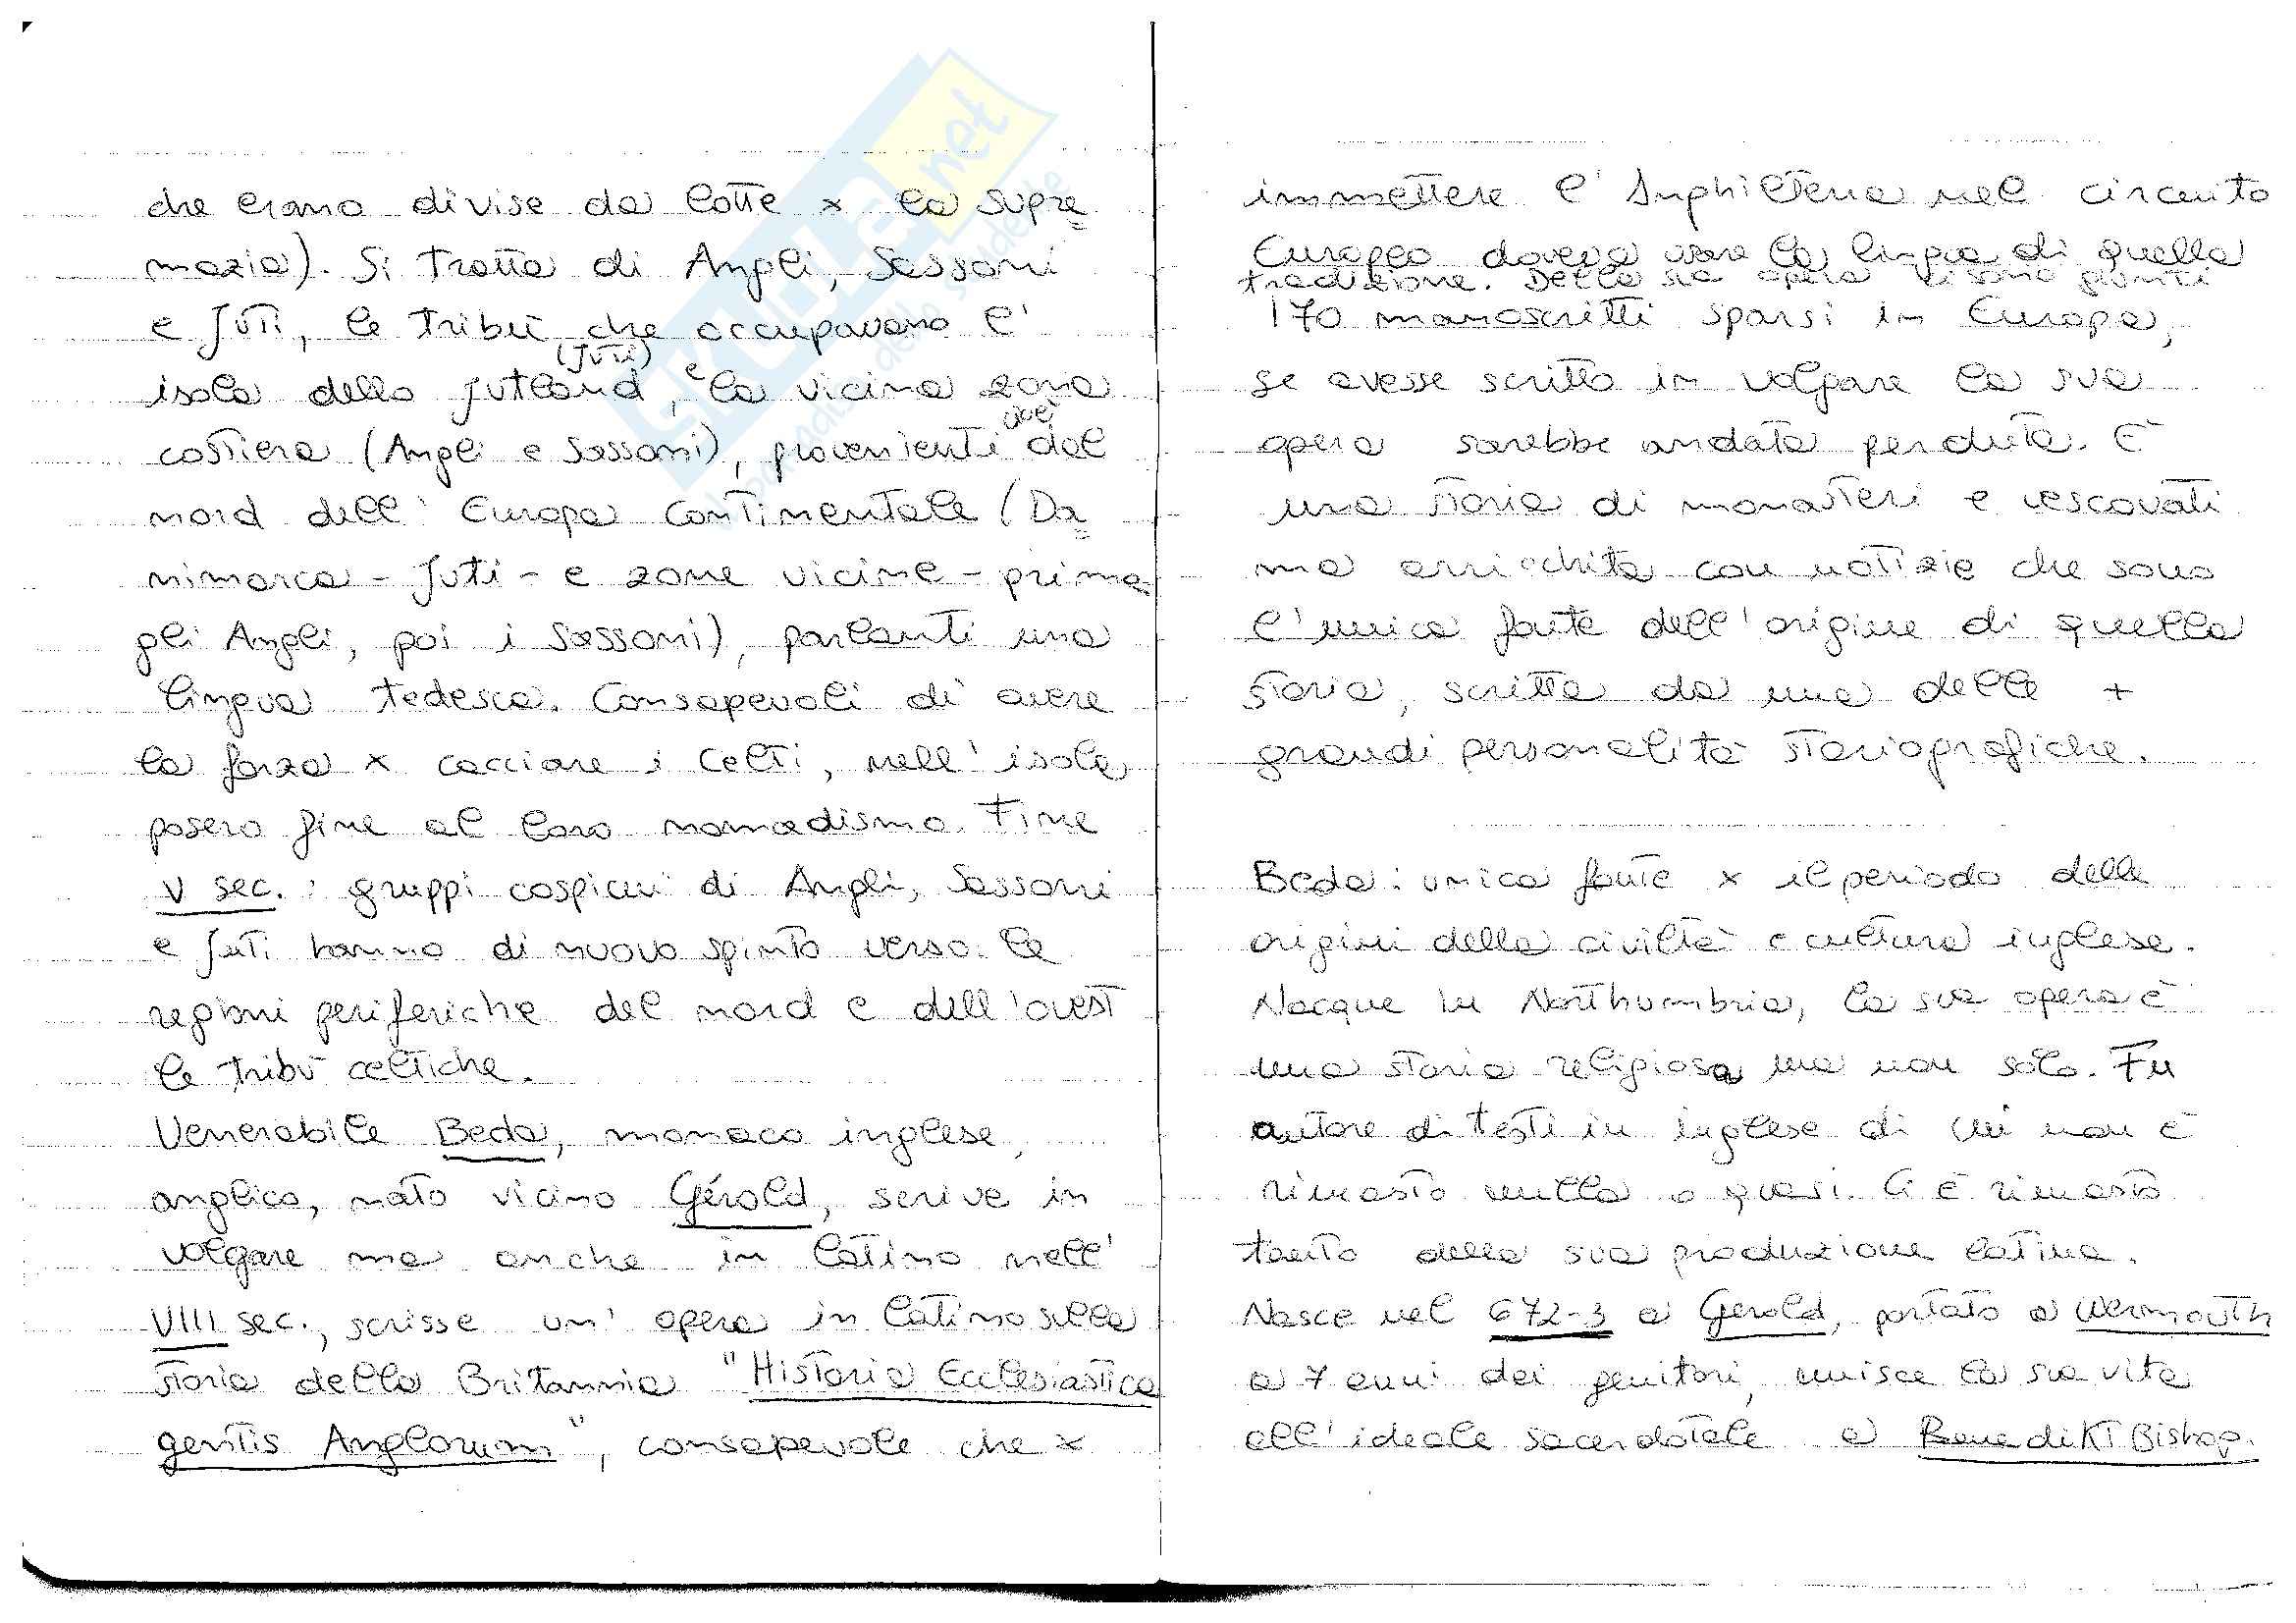 che erano divise da lotte x la supre
mazia). Si tratta di Angli, Sassoni
e Juti, le tribù che occupavano l'
(Juti)
isola dello Jutland, e la vicina zona
cioè
costiera (Angli e Sassoni), provenienti dal
nord dell'Europa continentale (Da
nimarca - Juti - e zone vicine - prima
gli Angli, poi i Sassoni), parlanti una
lingua tedesca. Consapevoli di avere
la forza x cacciare i Celti, nell'isola
posero fine al loro nomadismo. Fine
V sec.: gruppi cospicui di Angli, Sassoni
e Juti hanno di nuovo spinto verso le
regioni periferiche del nord e dell'ovest
le tribù celtiche.
Venerabile Beda, monaco inglese,
anglico, nato vicino Gérold, scrive in
volgare ma anche in latino nell'
VIII sec., scrisse un'opera in latino sulla
storia della Britannia "Historia Ecclesiastica
gentis Anglorum", consapevole che x
immettere l'Inghilterra nel circuito
Europeo doveva usare la lingua di quella
tradizione. Della sua opera ci sono giunti
170 manoscritti sparsi in Europa,
se avesse scritto in volgare la sua
opera sarebbe andata perduta. È
una storia di monasteri e vescovati
ma arricchita con notizie che sono
l'unica fonte dell'origine di quella
storia, scritta da una delle +
grandi personalità storiografiche.
Beda: unica fonte x il periodo delle
origini della civiltà e cultura inglese.
Nacque in Northumbria, la sua opera è
una storia religiosa ma non solo. Fu
autore di testi in inglese di cui non è
rimasto nulla o quasi. Ci è rimasto
tanto della sua produzione latina.
Nasce nel 672-3 a Gerold, portato a Wermouth
a 7 anni dai genitori, unisce la sua vita
all'ideale sacerdotale a Benedikt Bishop.